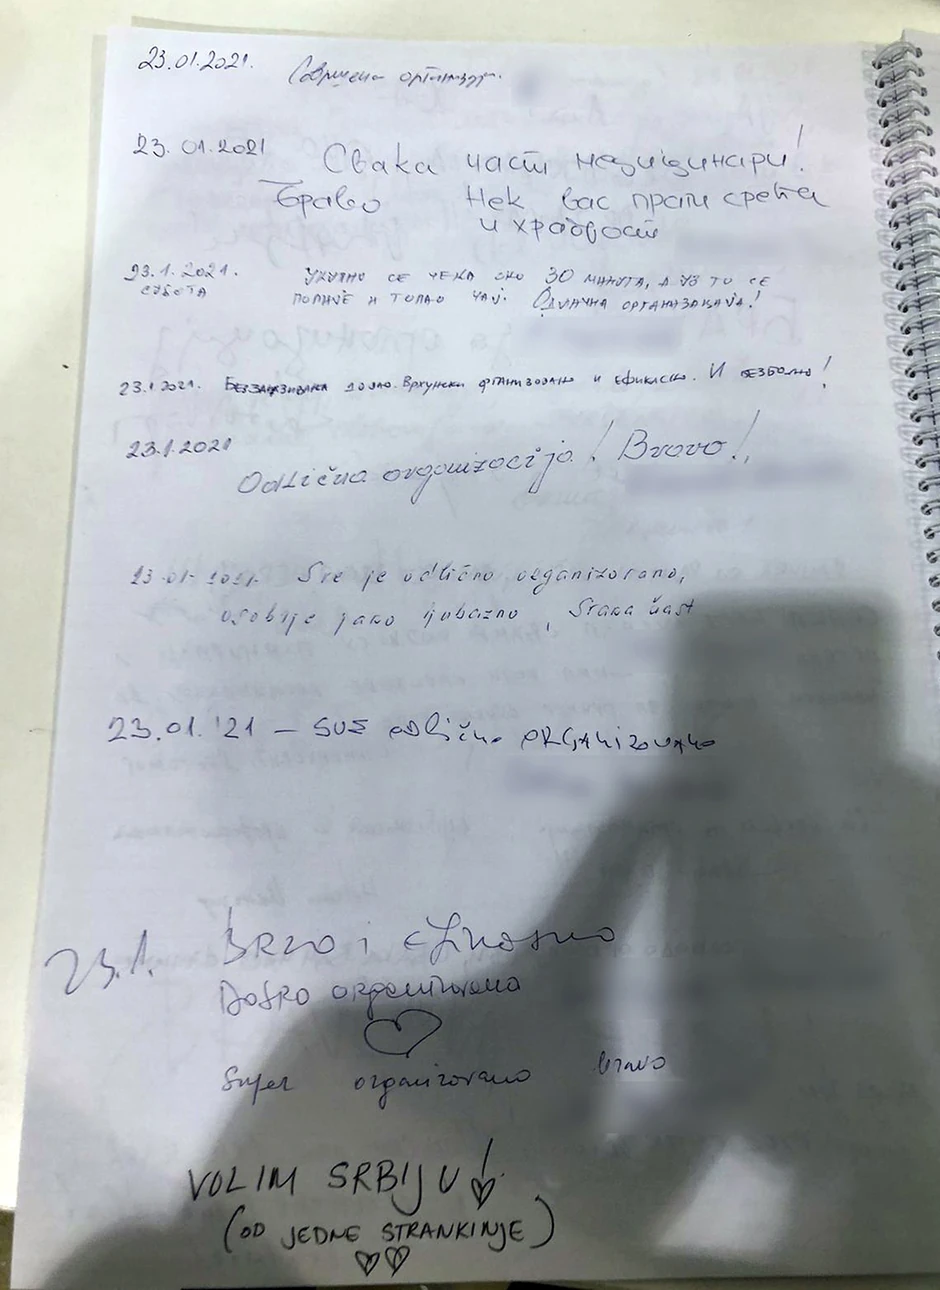 23.01.2021. Савршена
23.01.2021 Свака част медицинари!
Браво Нек вас прати срећа
и храброст
23.1.2021. УКУПНО СЕ ЧЕКА ОКО 30 МИНУТА, А УЗ ТО СЕ
СУБОТА ПОПИЈЕ И ТОПАО ЧАЈ. ОДЛИЧНА ОРГАНИЗАЦИЈА!
23.1.2021. Врхунски организовано и ефикасно. И безболно!
23.1.2021
Odlična organizacija! Bravo!
23.01.2021. Sve je odlično organizovano,
osoblje jako ljubazno, Svaka čast
23.01.'21 – SVE odlično ORGANIZOVANO
23.1. BRZO i efikasno
Dobro organizovano
Super organizovano bravo
VOLIM SRBIJU!
(OD JEDNE STRANKINJE)